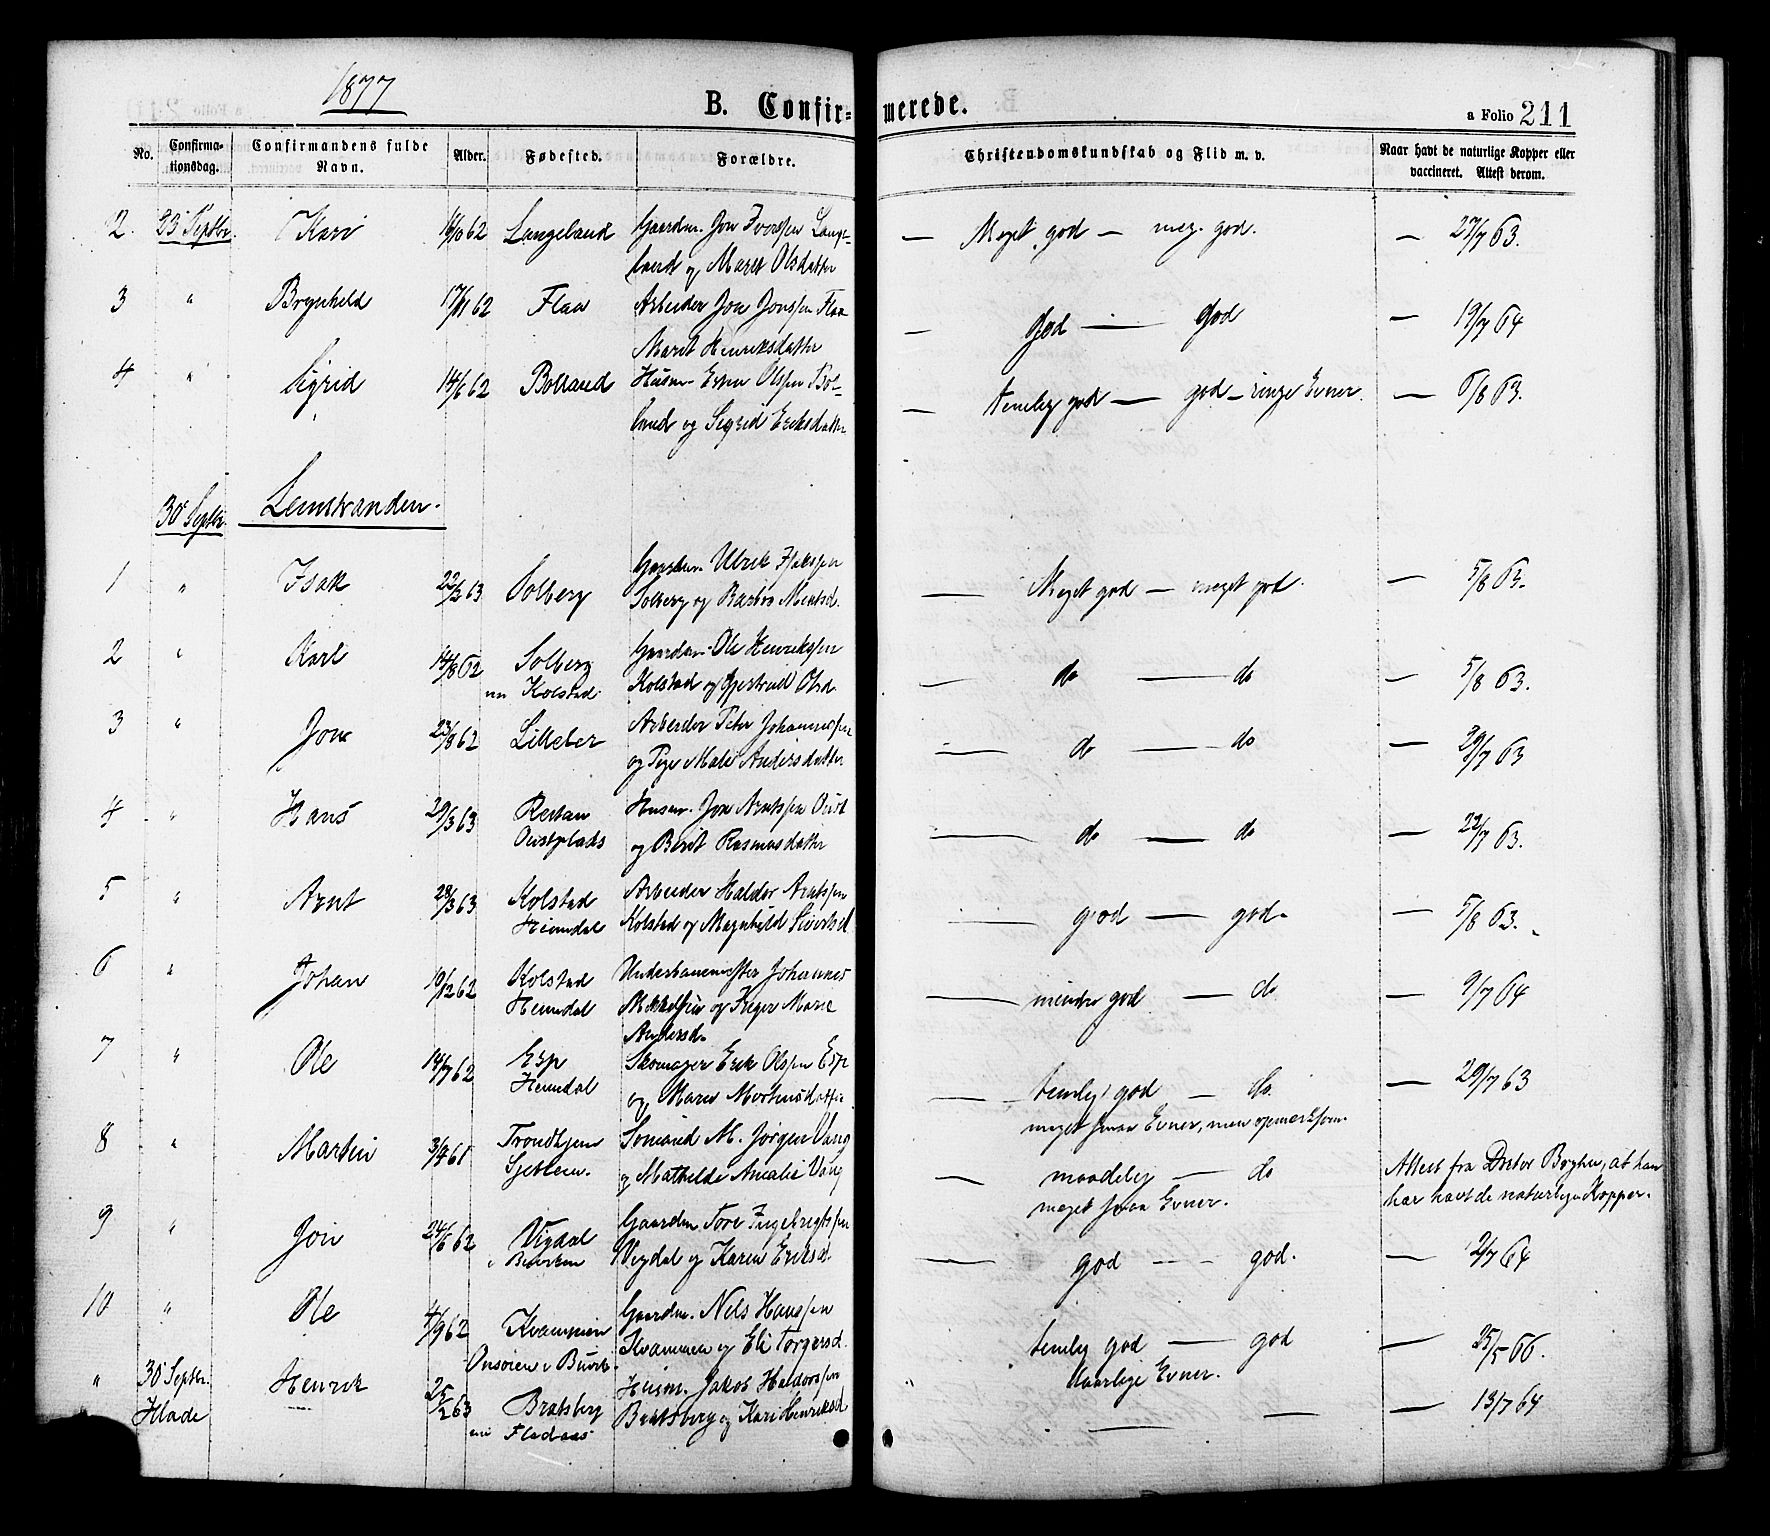 1877
B. Confirmerede.
a Folio 211
No.
Confirmationsdag.
Confirmandens fulde Navn.
Alder.
Fødested.
Forældre.
Christendomskundskab og Flid m. v.
Naar havt de naturlige Kopper eller vaccineret. Attest derom.
2. 23 Septbr. Kari 16/10 62 Langeland Gaardm. Jon Iversen Lange- — Meget god — meg. god. — 27/7 63.
land og Maret Olsdatter
3 " Brynhild 17/11 62 Flaa Arbeider Jon Jonssen Flaa — god — god — 19/7 64
Maret Henriksdatter
4 " Sigrid 14/6 62 Bolland Husm. Olssen Bol- — temelig god — god — ringe Evner. — 6/8 63.
land og Sigrid Eriksdatter
30 Septbr. Leinstranden.
1 " Isak 22/3 63 Solberg Gaardm. Ulrik Isakssen — Meget god — meget god. — 5/8 63.
Solberg og Mentsd.
2 " Karl 14/8 62 Solberg Gaardm. Ole Henrikssen — do — do — 5/8 63.
nu Kolstad Kolstad og Gjertrud Olsd.
3 " Jon 23/8 62 Lilleler Arbeider Peter Johannessen — do — do — 29/7 63
og Male Andersdatter
4 " Hans 29/3 63 Reitan Husm. Jon Arntssen Oust — do — do — 22/7 63.
Oustplads og Berit Rasmusdatter
5 " Arnt 28/3 63 Kolstad Arbeider Haldor Arntssen — god — god — 5/8 63.
Heimdal Kolstad og Magnhild Sivertsd.
6 " Johan 10/12 62 Kolstad Underbanemester Johannes — mindre god — do — 9/7 64
Heimdal Mikkelsen og Inger Marie
Andersd.
7 " Ole 14/7 62 Esp Skomager Erik Olssen Esp — temelig god — do. — 29/7 63
Heimdal og Maren Mortensdatter meget smaa Evner, men opmærksom.
8 " Martin 3/4 61 Trondhjem Sømand M. Jørgen Vang — maadelig — do Attest fra Doctor at han
og Mathilde Amalie Vang meget smaa Evner. har havt de naturlige Kopper.
9 " Jon 24/6 62 Vigdal Gaardm Tore Ingebrigtssen — god — god. — 2/7 64
Vigdal og Karen Eriksd.
10 " Ole 4/9 62 Kvammen Gaardm. Nels Hanssen — temelig god — god — 25/5 66.
Kvammen og Eli Torgersd. daarlige Evner.
" 30 Septbr. Henrik 25/2 63 Bratsberg Husm. Jakob Haldorssen — — — 13/7 64
Hlade nu Fladaas Bratsberg og Kari Henriksd